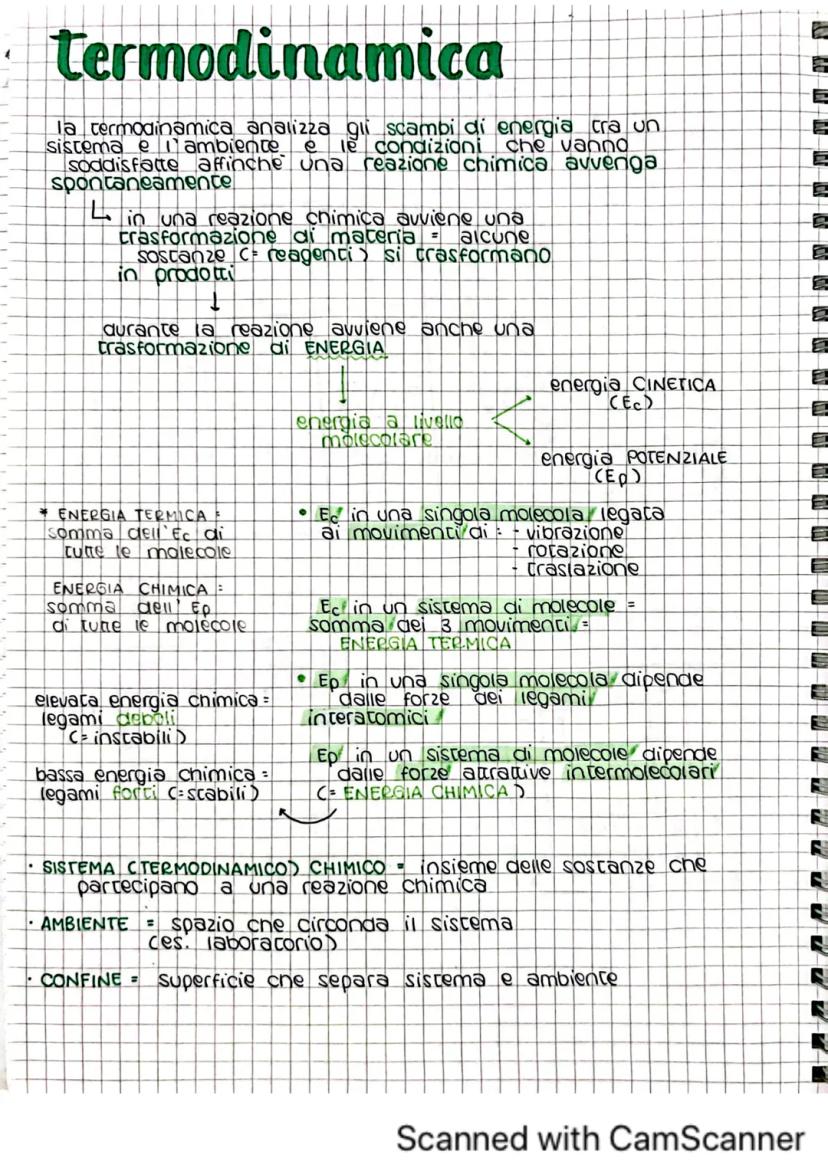 termodinamica
la termodinamica analizza gli scambi di energia tra un
sistema e l'ambiente e le condizioni che vanno
soddisfatte affinché una reazione chimica avvenga
spontaneamente
↳ in una reazione chimica avviene una
trasformazione di materia = alcune
sostanze (= reagenti) si trasformano
in prodotti
↓
durante la reazione avviene anche una
trasformazione di ENERGIA
energia a livello
molecolare
energia CINETICA
(Ec)
energia POTENZIALE
(Ep)
* ENERGIA TERMICA =
somma dell'Ec di
tutte le molecole
ENERGIA CHIMICA =
somma dell' Ep
di tutte le molecole
elevata energia chimica =
legami deboli
(= instabili)
bassa energia chimica =
legami forti (= stabili)
• Ec in una singola molecola legata
ai movimenti di : - vibrazione
- rotazione
- traslazione
Ec in un sistema di molecole =
somma dei 3 movimenti =
ENERGIA TERMICA
• Ep in una singola molecola dipende
dalle forze dei legami
interatomici
Ep in un sistema di molecole dipende
dalle forze attrattive intermolecolari
(= ENERGIA CHIMICA)
· SISTEMA (TERMODINAMICO) CHIMICO = insieme delle sostanze che
partecipano a una reazione chimica
· AMBIENTE = spazio che circonda il sistema
(es. laboratorio)
· CONFINE = superficie che separa sistema e ambiente
Scanned with CamScanner